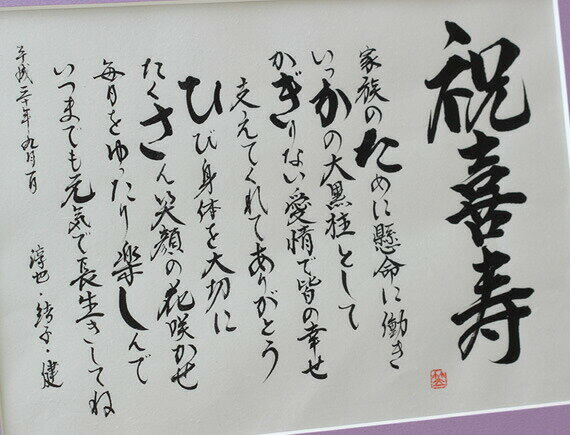 祝喜寿
家族のために懸命に働き
いっかの大黒柱として
かぎりない愛情で皆の幸せ
支えてくれてありがとう
ひび身体を大切に
たくさん笑顔の花咲かせ
毎日をゆったり楽しんで
いつまでも元気で長生きしてね
平成三十年九月一日
淳也・結子・健